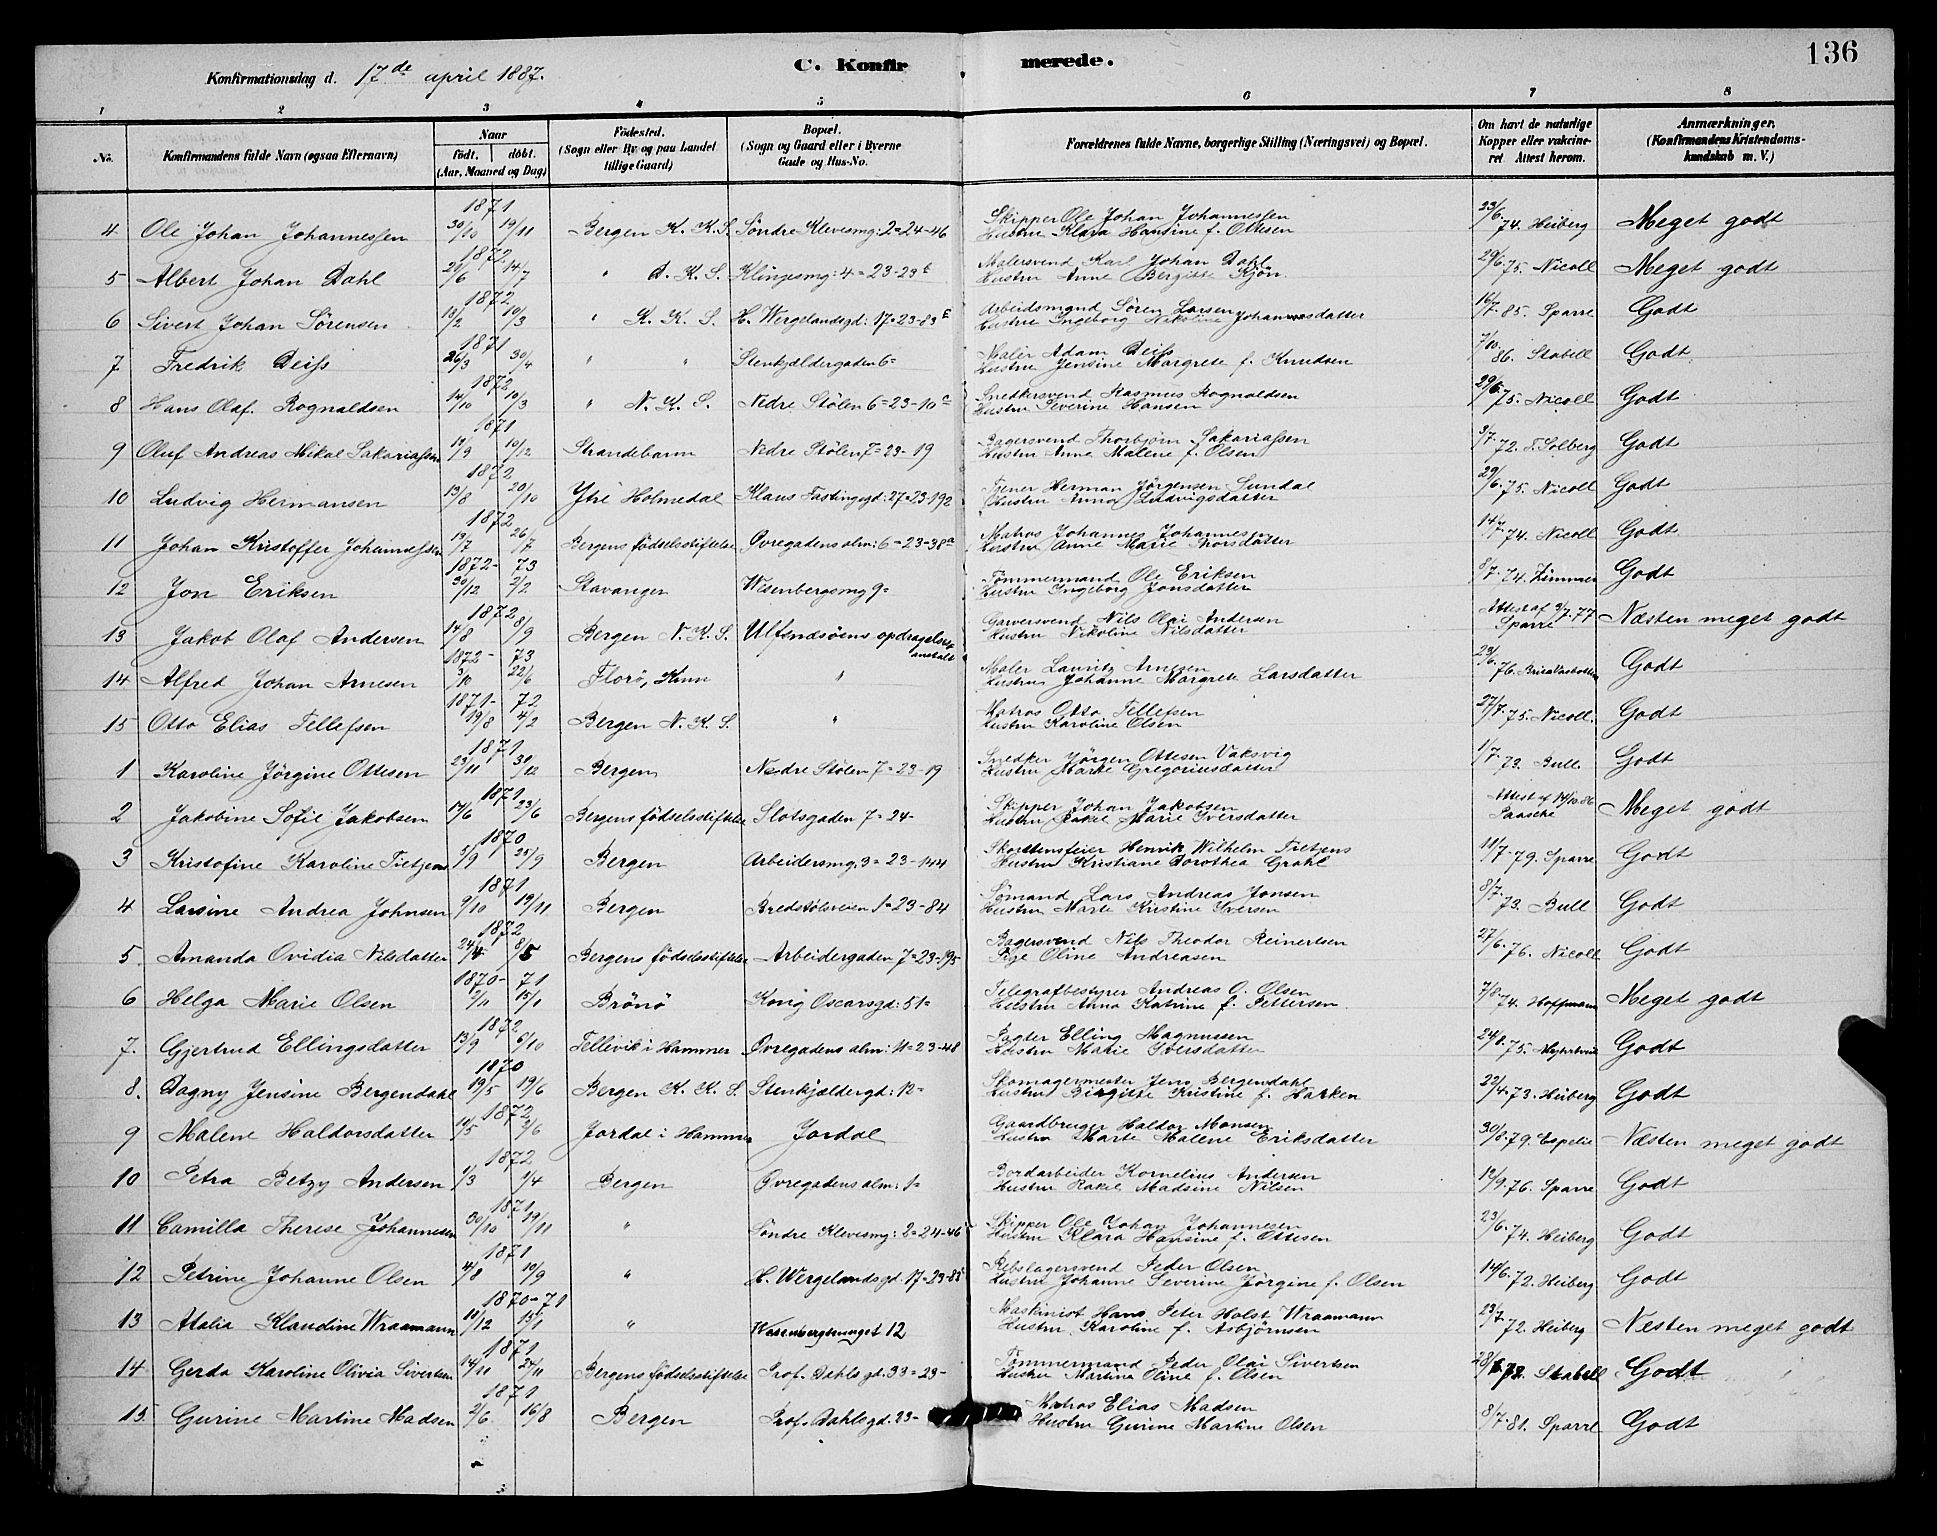 136
C. Konfirmerede.
Konfirmationsdag d. 17de april 1887.
1 2 3 4 5 6 7 8
No. Konfirmandens fulde Navn (ogsaa Efternavn) Naar født. døbt. (Aar, Maaned og Dag) Fødested. (Sogn eller By og paa Landet tillige Gaard) Bopæl. (Sogn og Gaard eller i Byerne Gade og Hus-No. Forældrenes fulde Navne, borgerlige Stilling (Næringsvei) og Bopæl. Om havt de naturlige Kopper eller vakcineret Attest herom. Anmærkninger. (Konfirmandens Kristendomskundskab m. V.)
1871
4 Ole Johan Johannessen 30/10 19/11 Bergen K. K. S. Söndre Klevesmg: 2=24-46 Skipper Ole Johan Johannessen Hustru Klara Hansine f. Ottesen 23/6.74. Heiberg Meget godt
1872
5 Albert Johan Dahl 21/6 14/7 " D. K. S. Klingesmg: 4=23-23 Malersvend Karl Johan Dahl Hustru Anne Bergitte Kjön 29/6.75. Nicoll Meget godt
1872
6 Sivert Johan Sörensen 13/2 10/3 " K. K. S. H. Wergelandsgd: 17=23-83 Arbeidsmand Sören Larsen Hustru Ingeborg Nikoline Johannesdatter 16/7.85. Sparre Godt
1871
7 Fredrik Deiss 26/3 30/4 " " Stenkjældergaden 6= Maler Adam Deiss Hustru Jensine Margrete f. Knudsen 7/10.86. Stabell Godt
1872
8 Hans Olaf. Rognaldsen 14/10 10/3 " N. K. S. Nedre Stölen 6=23-10 Snedkersvend Rasmus Rognaldsen Hustru Severine Hansen 29/6.75. Nicoll Godt
1871
9 Oluf Andreas Mikal Sakariassen 19/9 10/12 Strandebarm Nedre Stölen 7=23-19 Bagersvend Thorbjörn Sakariassen Hustru Anne Malene f. Olsen 3/7.72. Solberg Godt
1872
10 Ludvig Hermansen 13/8 20/10 Ytre Holmedal Klaus Fastingsgd: 27=23-192 Tjener Herman Jörgensen Sundal Hustru Anna Ludvigsdatter 29/6.75. Nicoll Godt
1872
11 Johan Kristoffer Johannessen 19/7 26/7 Bergens födselsstiftelse Övregadens alm: 6=23-38a Matros Johannes Johannesen Hustru Anne Marie Thorsdatter 14/7.74. Nicoll Godt
1872- 73
12 Jon Eriksen 30/12 2/2 Stavanger Wesenbergsmg 9= Tömmermand Ole Eriksen Hustru Ingeborg Jonsdatter 8/7.74. Zimmer Godt
1872
13 Jakob Olaf Andersen 14/8 8/9 Bergen N. K. S. Ulfsnesöens opdragelsesanstalt Garversvend Nils Olai Andersen Hustru Nikoline Nilsdatter Attest af 9/7.77 Sparre Næsten meget godt
1872- 73
14 Alfred Johan Arnesen 3/10 22/6 Florö, Kinn " Maler Lauritz Arnesen Hustru Johanne Margrete Larsdatter 23/6.76. Godt
1871- 72
15 Otto Elias Tellefsen 19/8 4/2 Bergen N. K. S. " Matros Otto Tellefsen Hustru Karoline Olsen 27/7.75. Nicoll. Godt
1871
1 Karoline Jörgine Ottesen 23/11 30/12 Bergen Nedre Stölen 7=23-19 Snedker Jörgen Ottesen Vaksvig Hustru Marte Gregoriusdatter 1/7.73. Bull Godt
1871
2 Jakobine Sofie Jakobsen 17/6 23/6 Bergens födselsstiftelse Slotsgaden 7=24- Skipper Johan Jakobsen Hustru Rakel Marie Iversdatter Attest af 14/10.86 Paasche Meget godt
1870
3 Kristofine Karoline Tietjens 5/9 25/9 Bergen Arbeidersmg. 3=23-144 Skorstensfeier Henrik Wilhelm Tietjens Hustru Kristiane Dorothea Grahl 11/7.79. Sparre Godt
1871
4 Larsine Andrea Johnsen 9/10 19/11 Bergen Bredstölsveien 1=23-84 Sömand Lars Andreas Jonsen Hustru Marte Kristine Iversen 8/7.73. Bull Godt
1872
5. Amanda Ovidia Nilsdatter 24/4 8/5 Bergens födselsstiftelse Arbeidergaden 7=23-195 Bagersvend Nils Theodor Reinertsen Pige Oline Andreasen 27/6.76. Nicoll Godt
1870- 71
6 Helga Marie Olsen 2/11 15/1 Brönö Kong Oscarsgd: 51= Telegrafbestyrer Andreas O. Olsen Hustru Anna Katrine f. Pettersen 7/8.74. Hoffmann Meget godt
1872
7. Gjertrud Ellingsdatter 13/9 6/10 Tellevik i Hammer Övregadens alm: 11=23-48 Pagter Elling Magnussen Hustru Marie Iversdatter 24/8.75. Godt
1870
8. Dagny Jensine Bergendahl 19/5 19/6 Bergen K. K. S. Stenkjældergd: 12= Skomagermester Jens Bergendahl Hustru Birgitte Kristine f. Harken 22/4.73. Heiberg Godt
1872
9 Malene Haldorsdatter 14/5 2/6 Jordal i Hammer Jordal Gaardbruger Haldor Monsen Hustru Marte Malene Eriksdatter 30/8.79. Espelie Næsten meget godt
1872
10 Petra Betzy Andersen 1/3 1/4 Bergen Övregadens alm: 1= Bordarbeider Kornelius Andersen Hustru Rakel Madsine Nilsen 19/9.76. Sparre Godt
1871
11 Camilla Therese Johannesen 30/10 19/11 " Söndre Klevesmg: 2=24-46 Skipper Ole Johan Johannesen Hustru Klara Hansine f. Ottesen 23/6.74. Heiberg Godt
1871
12 Petrine Johanne Olsen 4/8 10/9 " H. Wergelandsgd. 17=23-83 Rebslagersvend Peder Olsen Hustru Johanne Severine Jörgine f. Olsen 14/6.72. Heiberg Godt
1870-71
13 Atalia Klaudine Wraamann 10/12 15/1 " Wesenbergsmuget 12 Maskinist Hans Peter Holst Wraamann Hustru Karoline f. Asbjörnsen 23/7.72. Heiberg Næsten meget godt
1871
14 Gerda Karoline Olivia Sivertsen 14/11 24/11 Bergens födselsstiftelse Prof. Dahls gd. 33=23- Tömmermand Peder Olai Sivertsen Hustru Martine Oline f. Olsen 28/6.72. Stabell Godt
1871
15 Gurine Martine Madsen 2/6. 16/8 Bergen Prof. Dahlsgd. 23- Matros Elias Madsen Hustru Gurine Martine Olsen 8/7.81. Sparre Godt